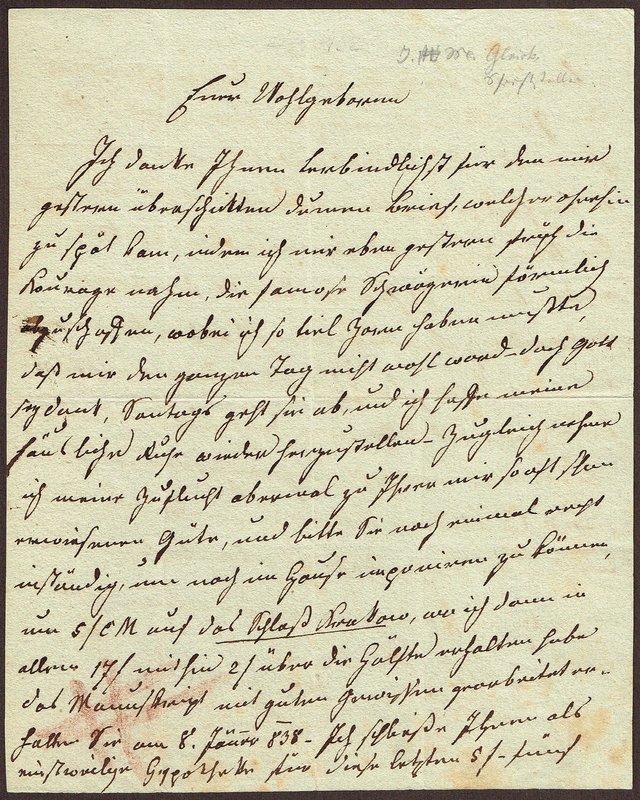 J. A. Gleich
Schriftsteller
Euer Wohlgeboren
Ich danke Ihnen verbindlichst für den mir
gestern überschickten dummen Brief, welcher ohnehin
zu spät kam, indem ich mir eben gestern früh die
Kourage nahm, die famose Schwägerin förmlich
abzuschaffen, wobei ich so viel Zorn haben mußte,
daß mir den ganzen Tag nicht wohl ward – doch Gott
sey dank, Sontags geht sie ab, und ich hoffe meine
häusliche Ruhe wieder herzustellen – Zugleich nehme
ich meine Zuflucht abermal zu Ihrer mir so oft schon
erwiesenen Güte, und bitte Sie noch einmal recht
inständig, um noch im Hause imponiren zu können,
um 5 f CM auf das Schloß Krakow, wo ich dann in
allem 17 f mithin 2 f über die Hälfte erhalten habe
das Manuskript mit guten Gewissen gearbeitet er-
halten Sie am 8. Jäner 838 – Ich schließe Ihnen als
einstweilige Hypotheke für diese letzten 5 f – fünf